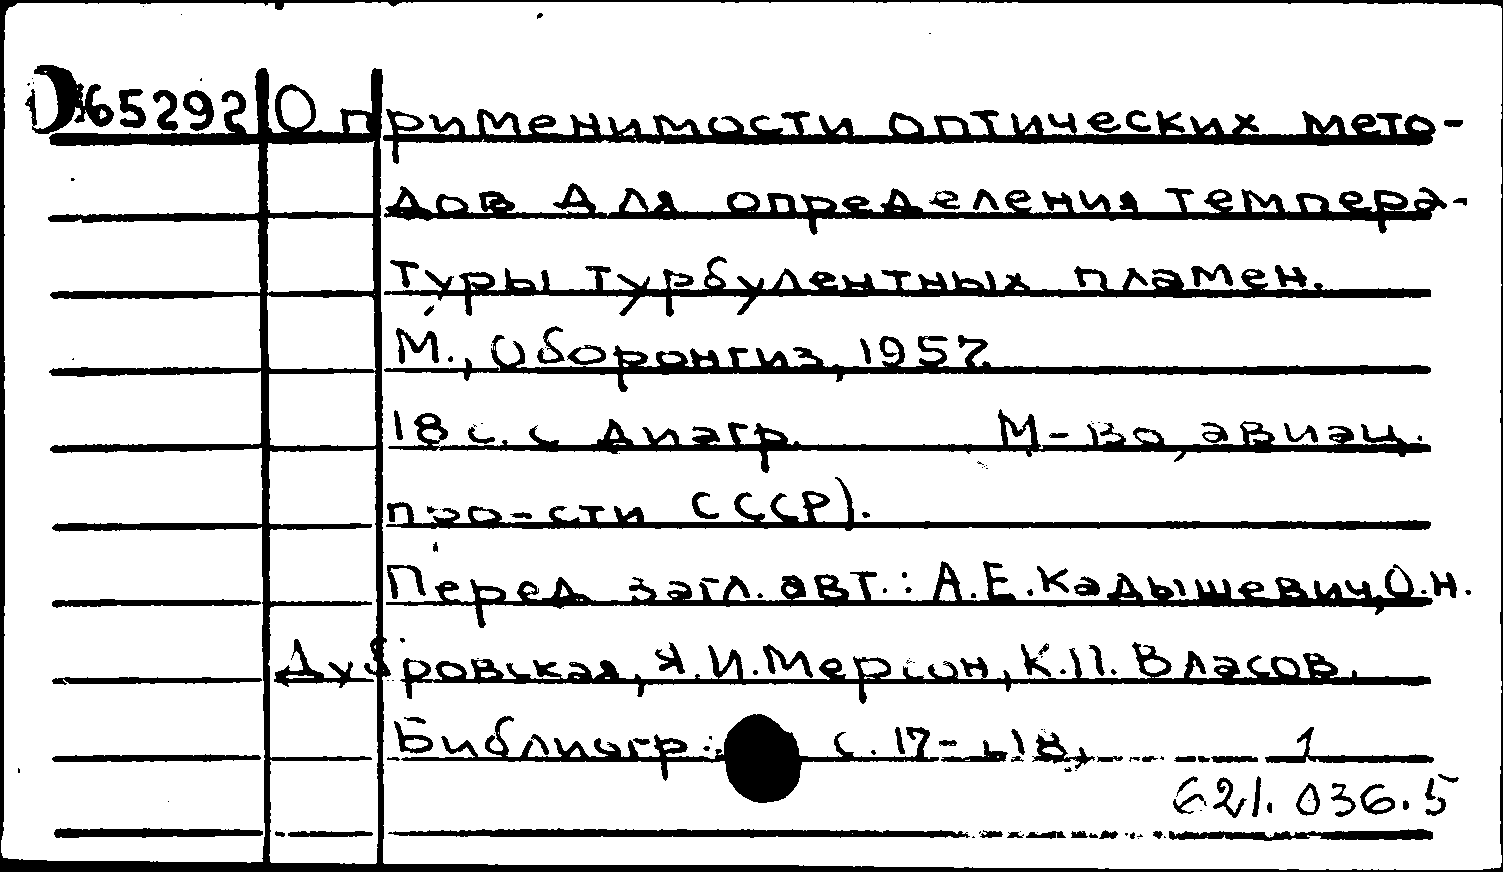 D65292 О применимости оптических мето-
дов для определения темпера-
туры турбулентных пламен.
М., Оборонгиз, 1957.
18 с. с диагр. М-во авиац.
про-сти СССР).
Перед загл. авт.: А.Е. Кадышевич, О.Н.
Дубровская, Я.И. Мерсон, К.П. Власов.
Библиогр.: с. 17-18, 1
621.036.5